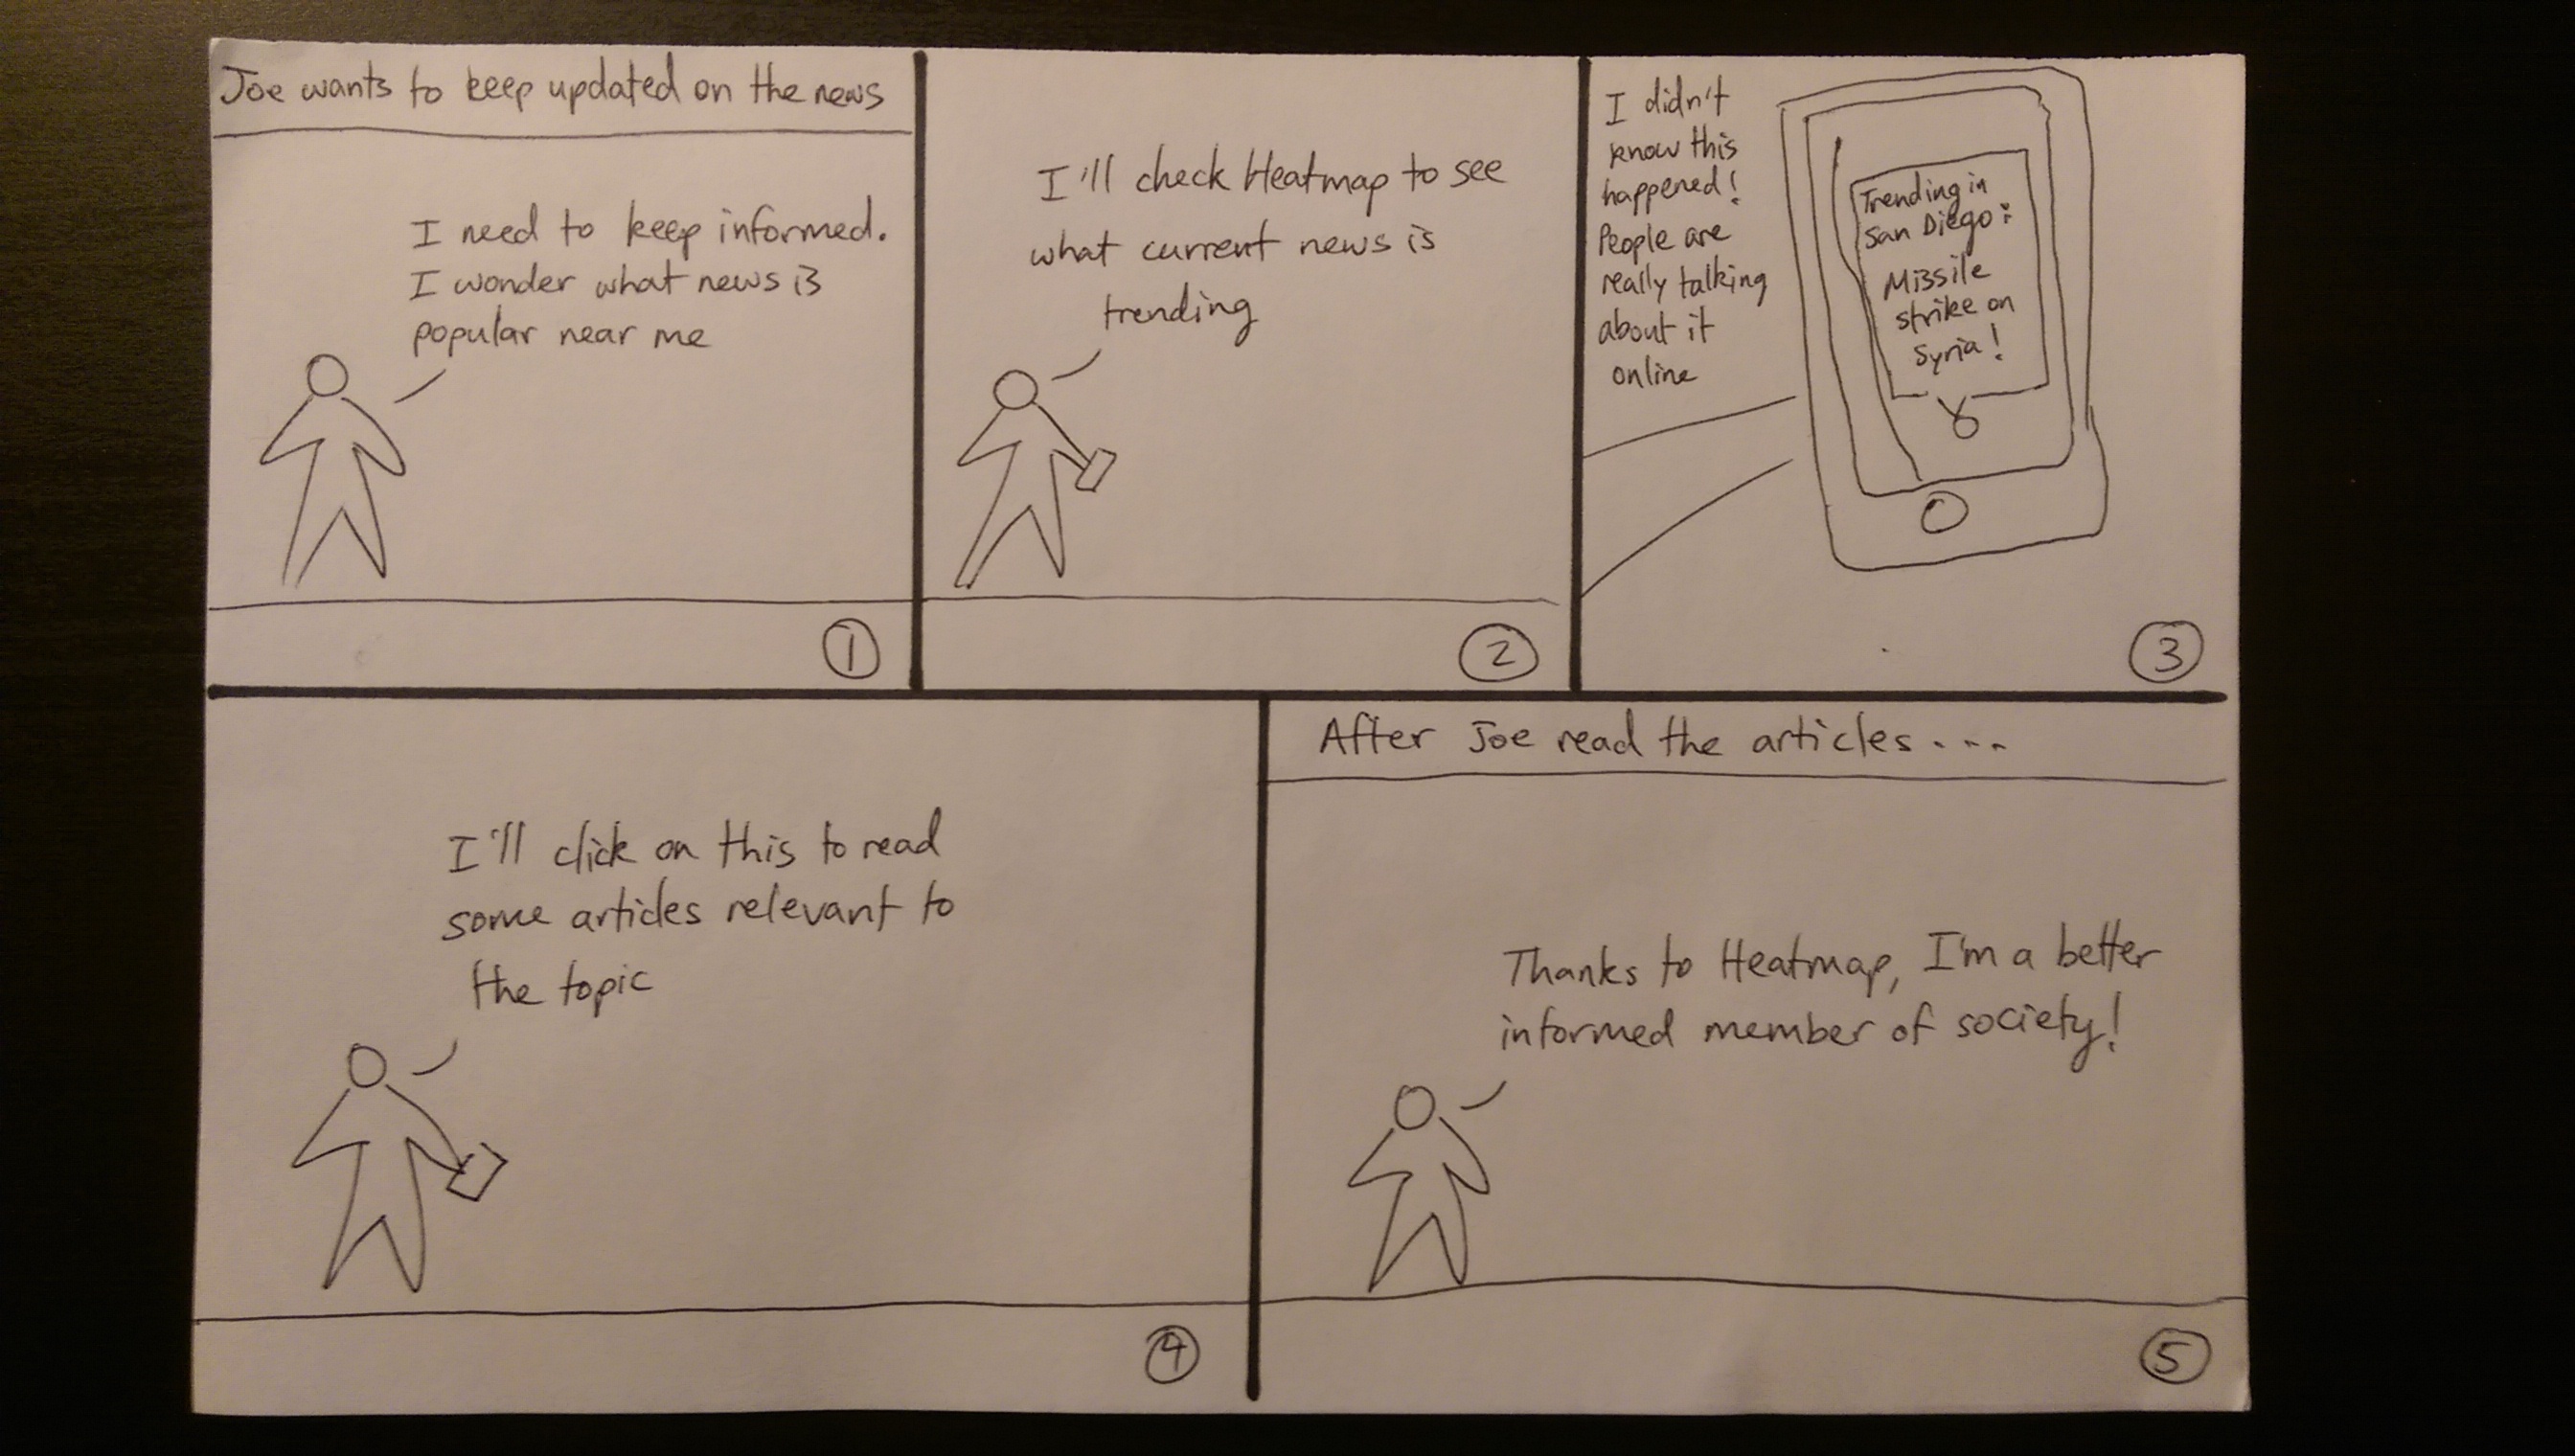 Joe wants to keep updated on the news
I need to keep informed.
I wonder what news is
popular near me
1
I'll check Heatmap to see
what current news is
trending
2
I didn't
know this
happened!
People are
really talking
about it
online
Trending in
San Diego:
Missile
strike on
Syria!
3
I'll click on this to read
some articles relevant to
the topic
4
After Joe read the articles....
Thanks to Heatmap, I'm a better
informed member of society!
5